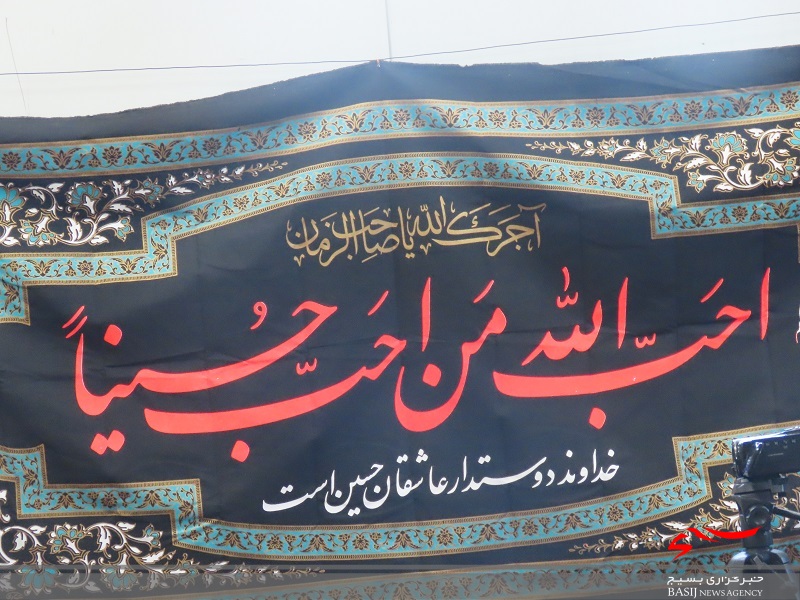 آجرک الله یا صاحب الزمان
احَبَّ الله مَن احَبَّ حُسیناً
خداوند دوستدار عاشقان حسین است
خبرگزاری بسیج
BASIJ NEWS AGENCY